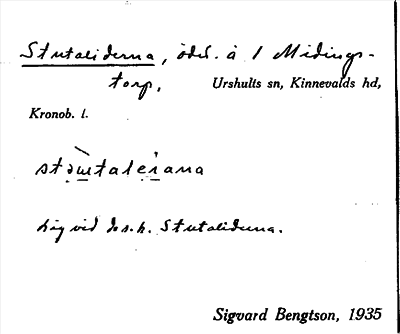 Stutaliderna, ödel. å 1 Midings-
torp, Urshults sn, Kinnevalds hd,
Kronob. l.
Låg vid d.s.h. Stutaliderna.
Sigvard Bengtson, 1935